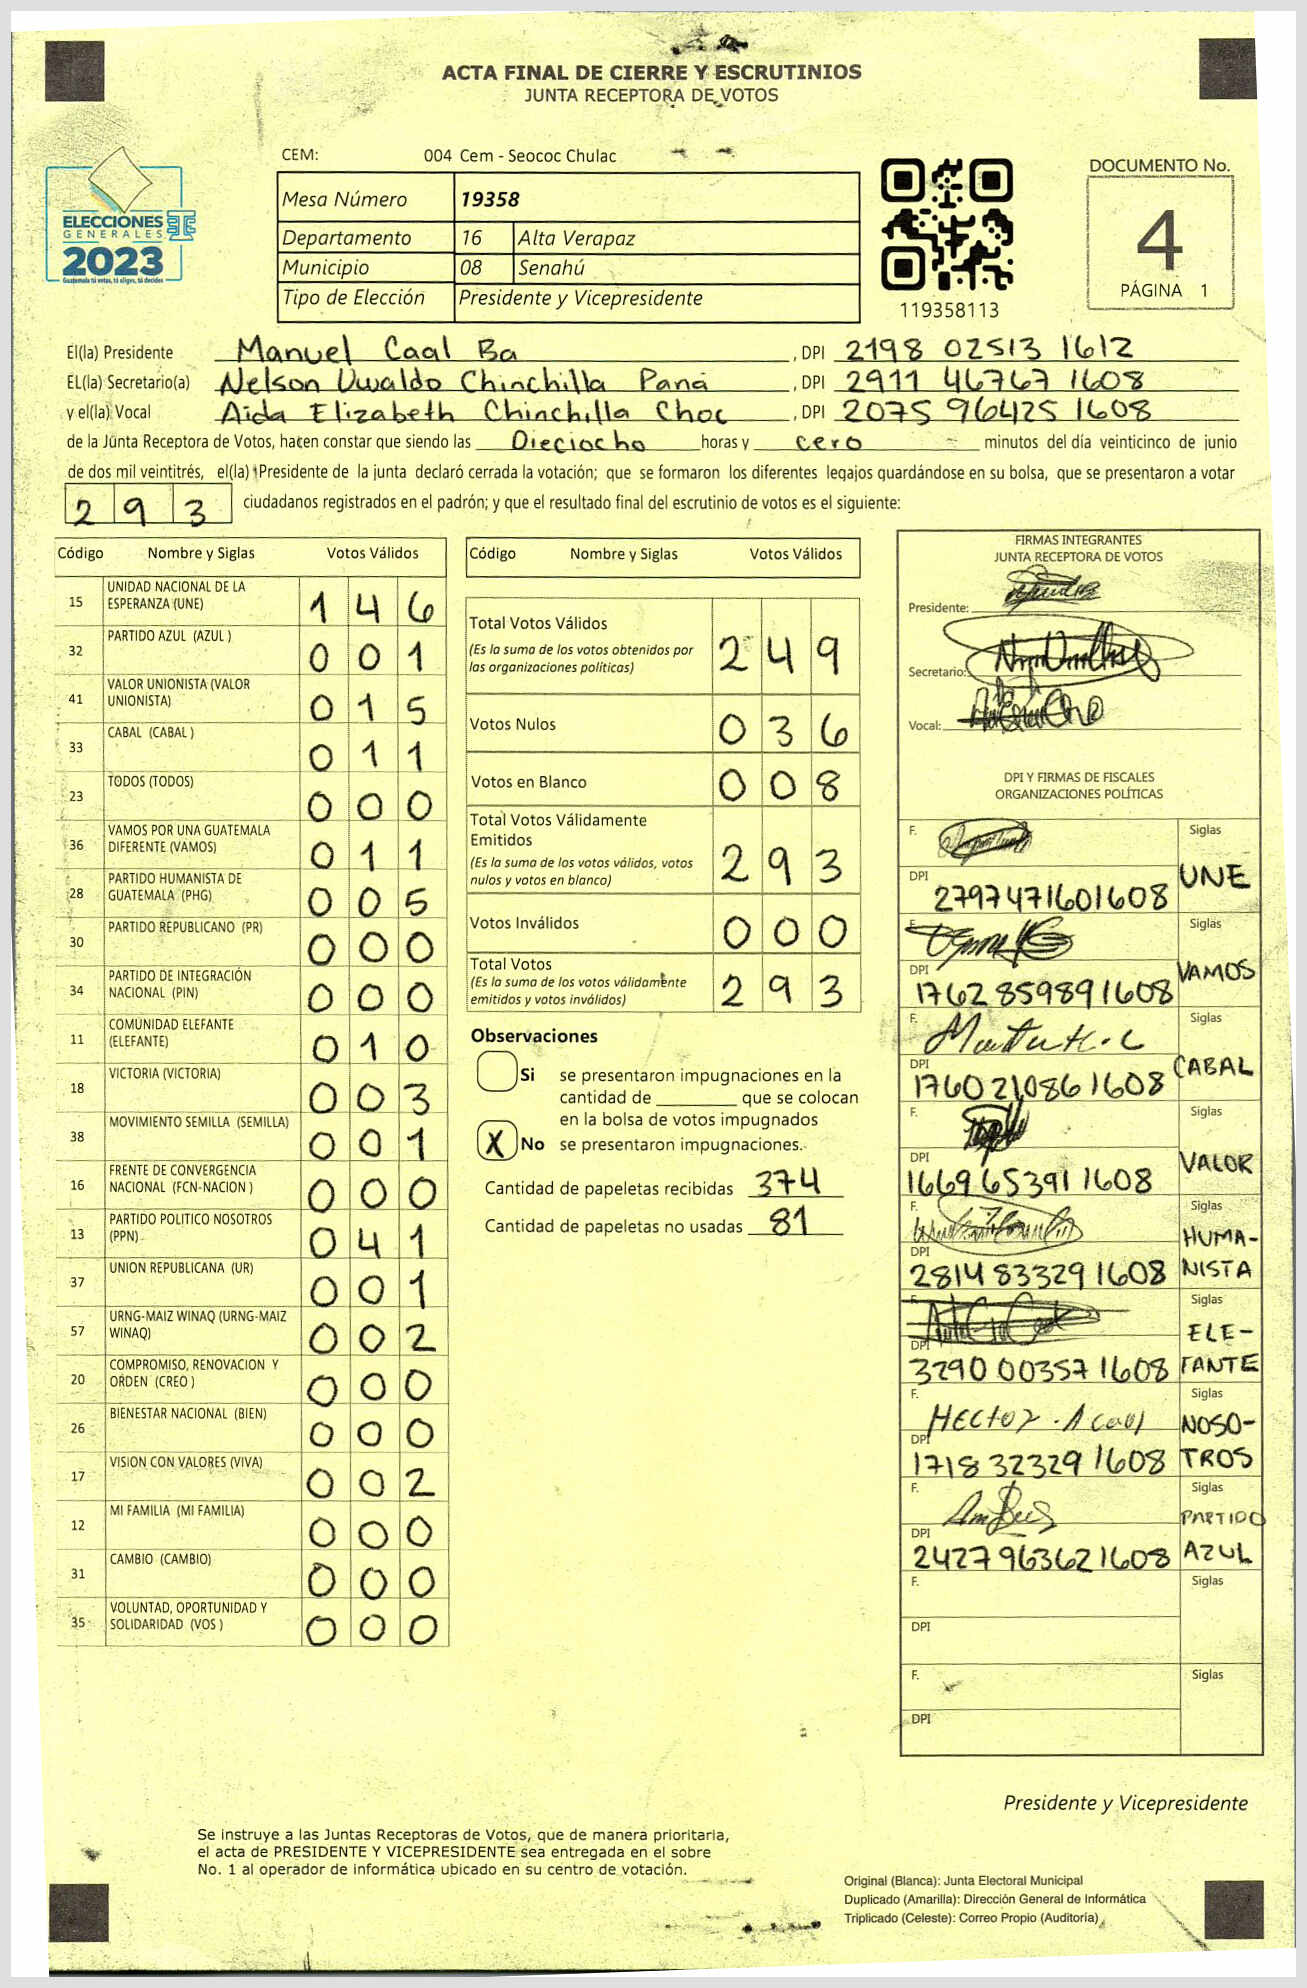 ACTA FINAL DE CIERRE Y ESCRUTINIOS
JUNTA RECEPTORA DE VOTOS
CEM: 004 Cem - Seococ Chulac
Mesa Número 19358
Departamento 16 Alta Verapaz
Municipio 08 Senahú
Tipo de Elección Presidente y Vicepresidente
ELECCIONES
GENERALES
2023
Guatemala tú votas, tú eliges, tú decides
119358113
DOCUMENTO No.
4
PÁGINA 1
El(la) Presidente Manuel Caal Ba , DPI 2198 02513 1612
EL(la) Secretario(a) Nelson Uwaldo Chinchilla Paná , DPI 2911 46767 1608
y el(la) Vocal Aida Elizabeth Chinchilla Choc , DPI 2075 96425 1608
de la Junta Receptora de Votos, hacen constar que siendo las Dieciocho horas y cero minutos del día veinticinco de junio
de dos mil veintitrés, el(la) Presidente de la junta declaró cerrada la votación; que se formaron los diferentes legajos guardándose en su bolsa, que se presentaron a votar
293 ciudadanos registrados en el padrón; y que el resultado final del escrutinio de votos es el siguiente:
Código Nombre y Siglas Votos Válidos
15 UNIDAD NACIONAL DE LA ESPERANZA (UNE) 146
32 PARTIDO AZUL (AZUL ) 001
41 VALOR UNIONISTA (VALOR UNIONISTA) 015
33 CABAL (CABAL ) 011
23 TODOS (TODOS) 000
36 VAMOS POR UNA GUATEMALA DIFERENTE (VAMOS) 011
28 PARTIDO HUMANISTA DE GUATEMALA (PHG) 005
30 PARTIDO REPUBLICANO (PR) 000
34 PARTIDO DE INTEGRACIÓN NACIONAL (PIN) 000
11 COMUNIDAD ELEFANTE (ELEFANTE) 010
18 VICTORIA (VICTORIA) 003
38 MOVIMIENTO SEMILLA (SEMILLA) 001
16 FRENTE DE CONVERGENCIA NACIONAL (FCN-NACION ) 000
13 PARTIDO POLITICO NOSOTROS (PPN) 041
37 UNION REPUBLICANA (UR) 001
57 URNG-MAIZ WINAQ (URNG-MAIZ WINAQ) 002
20 COMPROMISO, RENOVACION Y ORDEN (CREO ) 000
26 BIENESTAR NACIONAL (BIEN) 000
17 VISION CON VALORES (VIVA) 002
12 MI FAMILIA (MI FAMILIA) 000
31 CAMBIO (CAMBIO) 000
35 VOLUNTAD, OPORTUNIDAD Y SOLIDARIDAD (VOS ) 000
Código Nombre y Siglas Votos Válidos
Total Votos Válidos 249
(Es la suma de los votos obtenidos por
las organizaciones políticas)
Votos Nulos 036
Votos en Blanco 008
Total Votos Válidamente
Emitidos 293
(Es la suma de los votos válidos, votos
nulos y votos en blanco)
Votos Inválidos 000
Total Votos 293
(Es la suma de los votos válidamente
emitidos y votos inválidos)
Observaciones
Si se presentaron impugnaciones en la
cantidad de ________ que se colocan
en la bolsa de votos impugnados
X No se presentaron impugnaciones.
Cantidad de papeletas recibidas 374
Cantidad de papeletas no usadas 81
FIRMAS INTEGRANTES
JUNTA RECEPTORA DE VOTOS
Presidente:
Secretario:
Vocal:
DPI Y FIRMAS DE FISCALES
ORGANIZACIONES POLÍTICAS
F. Siglas
DPI 2797471601608 UNE
F. Siglas
DPI 1762859891608 VAMOS
F. Siglas
DPI 1760210861608 CABAL
F. Siglas
DPI 1669653911608 VALOR
F. Siglas
DPI 2814833291608 HUMA-
NISTA
F. Siglas
DPI 3290003571608 ELE-
FANTE
F. HECTOR Siglas
DPI 1718323291608 NOSO-
TROS
F. Siglas
DPI 2427963621608 PARTIDO
AZUL
F. Siglas
DPI
F. Siglas
DPI
Presidente y Vicepresidente
Se instruye a las Juntas Receptoras de Votos, que de manera prioritaria,
el acta de PRESIDENTE Y VICEPRESIDENTE sea entregada en el sobre
No. 1 al operador de informática ubicado en su centro de votación.
Original (Blanca): Junta Electoral Municipal
Duplicado (Amarilla): Dirección General de Informática
Triplicado (Celeste): Correo Propio (Auditoría)